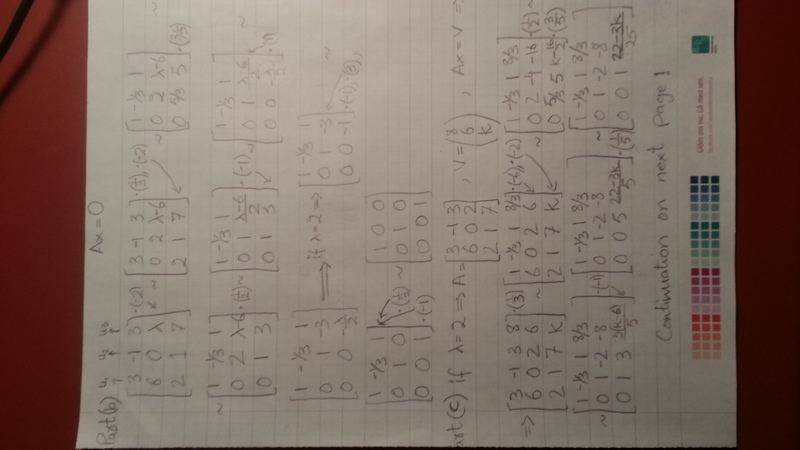 Part(b) u₁ u₂ u₃ Ax=0
[3 -1 3; 6 0 λ; 2 1 7] ·(-2) ~ [3 -1 3; 0 2 λ-6; 2 1 7] ·(1/3) ·(-2) ~ [1 -1/3 1; 0 2 λ-6; 0 5/3 5] ·(3/5)
~ [1 -1/3 1; 0 2 λ-6; 0 1 3] ·(1/2) ~ [1 -1/3 1; 0 1 λ-6/2; 0 1 3] ·(-1) ~ [1 -1/3 1; 0 1 λ-6/2; 0 0 -λ/2]
[1 -1/3 1; 0 1 -3; 0 0 -λ/2] => if λ=2 => [1 -1/3 1; 0 1 -3; 0 0 -1] ·(-1), (3), ~
[1 -1/3 1; 0 1 0; 0 0 1] ·(1/3) ·(-1) ~ [1 0 0; 0 1 0; 0 0 1]
art(c) if λ=2 => A= [3 -1 3; 6 0 2; 2 1 7], V= (8 6 k), Ax=V =>
=> [3 -1 3 8; 6 0 2 6; 2 1 7 k] ·(1/3) ~ [1 -1/3 1 8/3; 6 0 2 6; 2 1 7 k] ·(-6), ·(-2) ~ [1 -1/3 1 8/3; 0 2 -4 -16; 0 5/3 5 k-16] ·(1/2) ·(3/5) ~
~ [1 -1/3 1 8/3; 0 1 -2 -8; 0 1 3 3(k-6)/5] ·(-1) ~ [1 -1/3 1 8/3; 0 1 -2 -8; 0 0 5 22-3k/5] ·(1/5) ~ [1 -1/3 1 8/3; 0 1 -2 -8; 0 0 1 22-3k/25]
Continuation on next page!